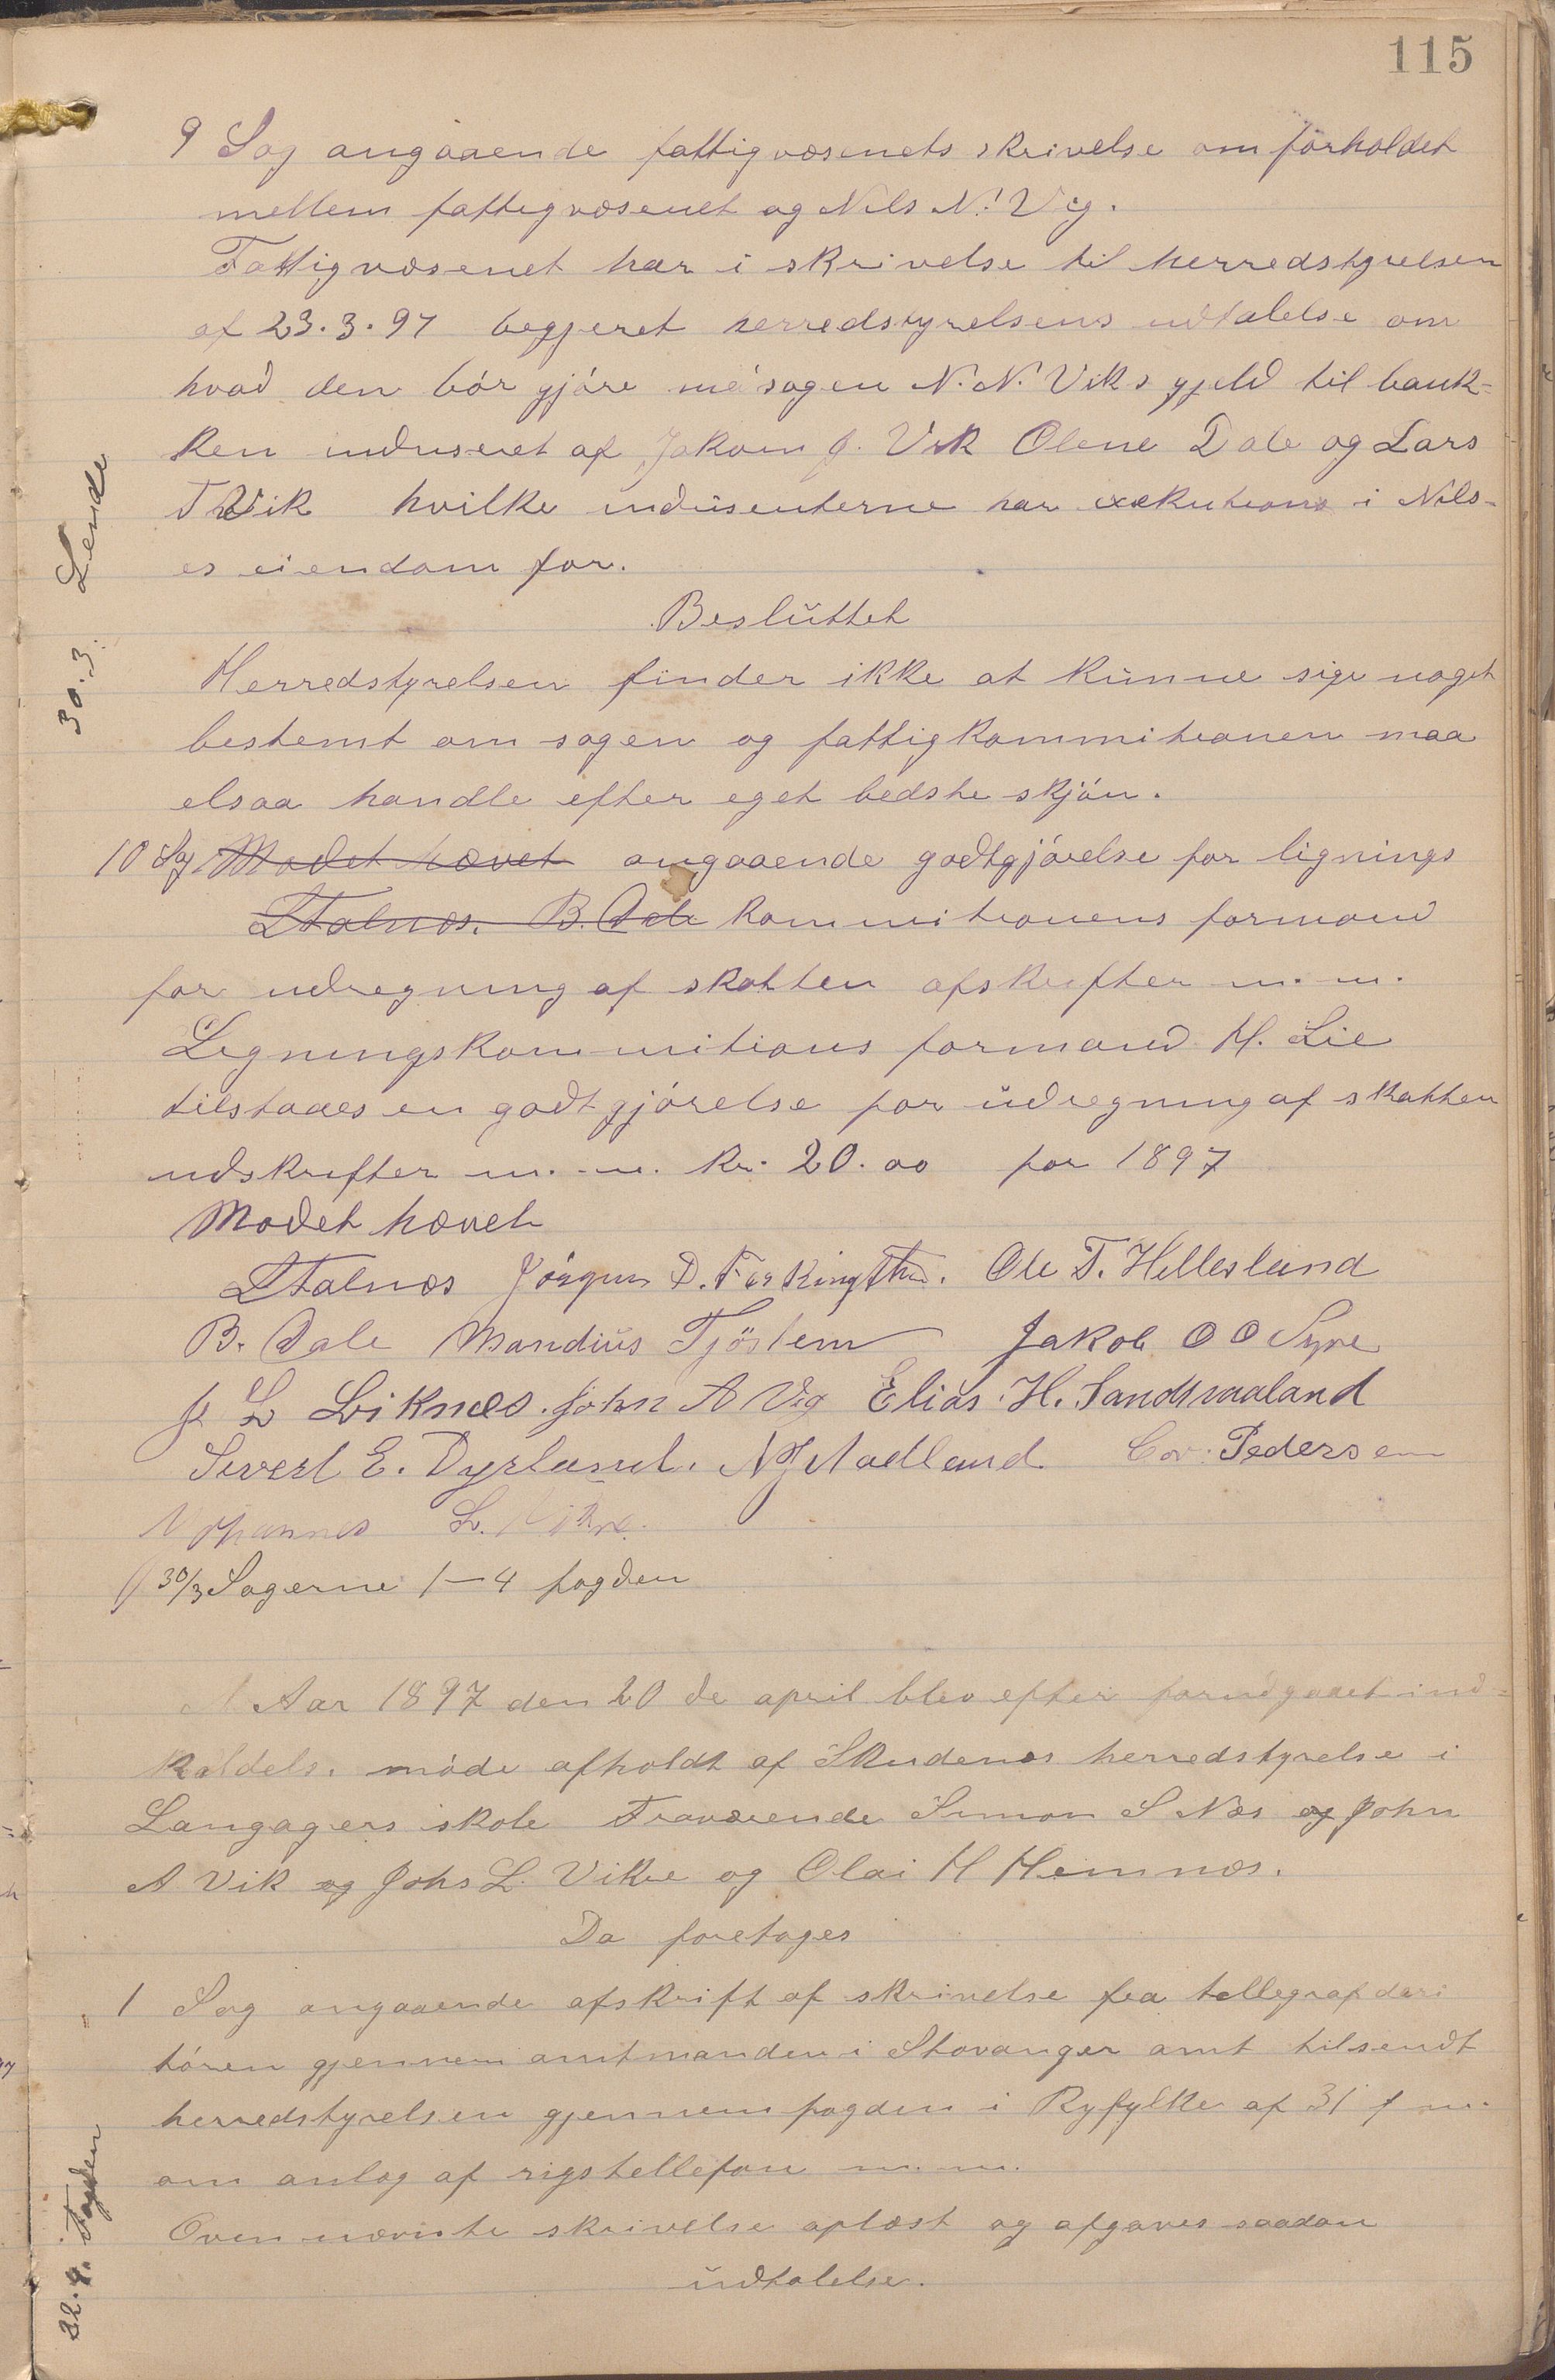 115
9 Sag angaaende fattigvæsenets skrivelse om forholdet
mellem fattigvæsenet og Nils N. Vig.
Fattigvæsenet har i skrivelse til herredstyrelsen
af 23.3.97 begjeret herredstyrelsens udtalelse om
hvad den bör gjöre me sagen N. N. Viks gjeld til bank-
ken induseret af Jakom J. Vik Olene Dale og Lars
T Vik hvilke indusenterne har exekutions i Nils-
es eiendom for.
30.3. Lende
Besluttet
Herredstyrelsen finder ikke at kunne sige noget
bestemt om sagen og fattigkommitionen maa
elsaa handle efter eget bedste skjön.
10 Sag Modet hævet angaaende godtgjörelse for lignings
LTalnæs. B. Dale kommitionens formand
for udregning af skatten afskrifter m. m.
Ligningskommitions formand H. Lie
tilstaaes en godtgjörelse for udregning af skatten
udskrifter m. m. kr. 20.00 for 1897
Modet hævet
LTalnæs Jörgen D. Ferkingstad. Ole T. Hellesland
B. Dale Mandius Tjöstem Jakob O O Syre
J L Liknes. John A Vig Elias H. Sandvaaland
Sivert E. Dyrland. N J Aadland. Cor. Pedersen
Johannes L. Vikre.
30/3 Sagerne 1—4 fogden
Aar 1897 den 20 de april blev efter forudgaaet ind-
kaldels. möde afholdt af Skudenæs herredstyrelse i
Langagers skole Fraværende Simon S Næs og John
A Vik og Johs L. Vikre og Olai H Hemnæs.
Da foretages
1 Sag angaaende afskrift af skrivelse fra tellegrafderi
tören gjennem amtmanden i Stavanger amt tilsendt
herredstyrelsen gjennem fogden i Ryfylke af 31 f m.
om anlæg af rigstellefon m. m.
Ovennævnte skrivelse oplæst og afgaves saadan
udtalelse.
22.4. Fogden